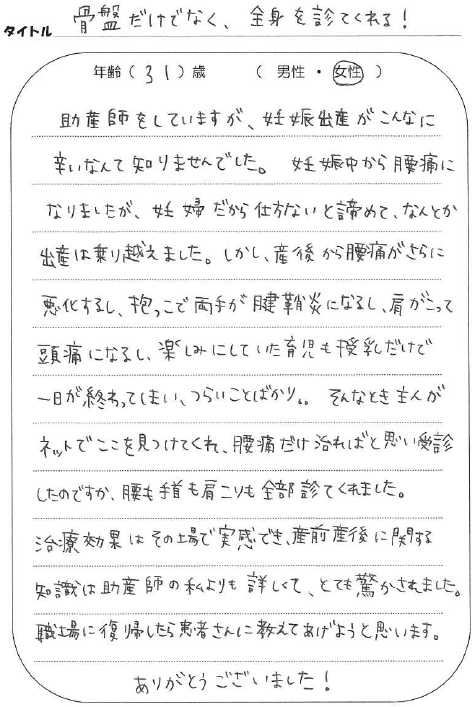 タイトル 骨盤だけでなく、全身を診てくれる!
年齢(31)歳 (男性・女性)
助産師をしていますが、妊娠出産がこんなに
辛いなんて知りませんでした。 妊娠中から腰痛に
なりましたが、妊婦だから仕方ないと諦めて、なんとか
出産は乗り越えました。しかし、産後から腰痛がさらに
悪化するし、抱っこで両手が腱鞘炎になるし、肩がこって
頭痛になるし、楽しみにしていた育児も授乳だけで
一日が終わってしまい、つらいことばかり。。 そんなとき主人が
ネットでここを見つけてくれ、腰痛だけ治ればと思い受診
したのですが、腰も手首も肩こりも全部診てくれました。
治療効果はその場で実感でき、産前産後に関する
知識は助産師の私よりも詳しくて、とても驚かされました。
職場に復帰したら患者さんに教えてあげようと思います。
ありがとうございました!